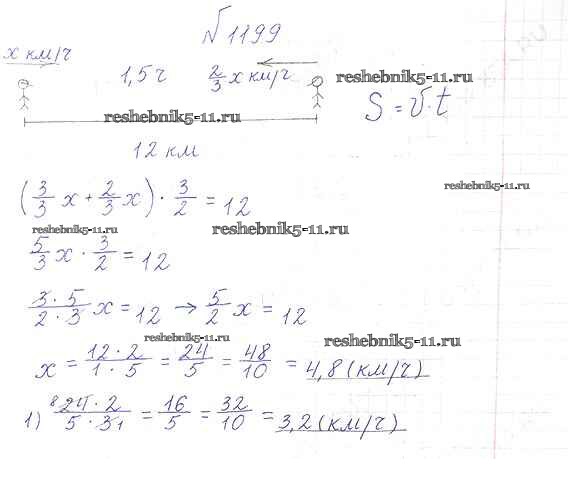 №1199
x км/ч 1,5ч 2/3 x км/ч
reshebnik5-11.ru
S = v·t
reshebnik5-11.ru
12 км
reshebnik5-11.ru
(3/3 x + 2/3 x) · 3/2 = 12
reshebnik5-11.ru
reshebnik5-11.ru
5/3 x · 3/2 = 12
3·5/2·3 x = 12 → 5/2 x = 12
reshebnik5-11.ru
reshebnik5-11.ru
x = 12·2/1·5 = 24/5 = 48/10 = 4,8 (км/ч)
1) ⁸24·2/5·3₁ = 16/5 = 32/10 = 3,2 (км/ч)